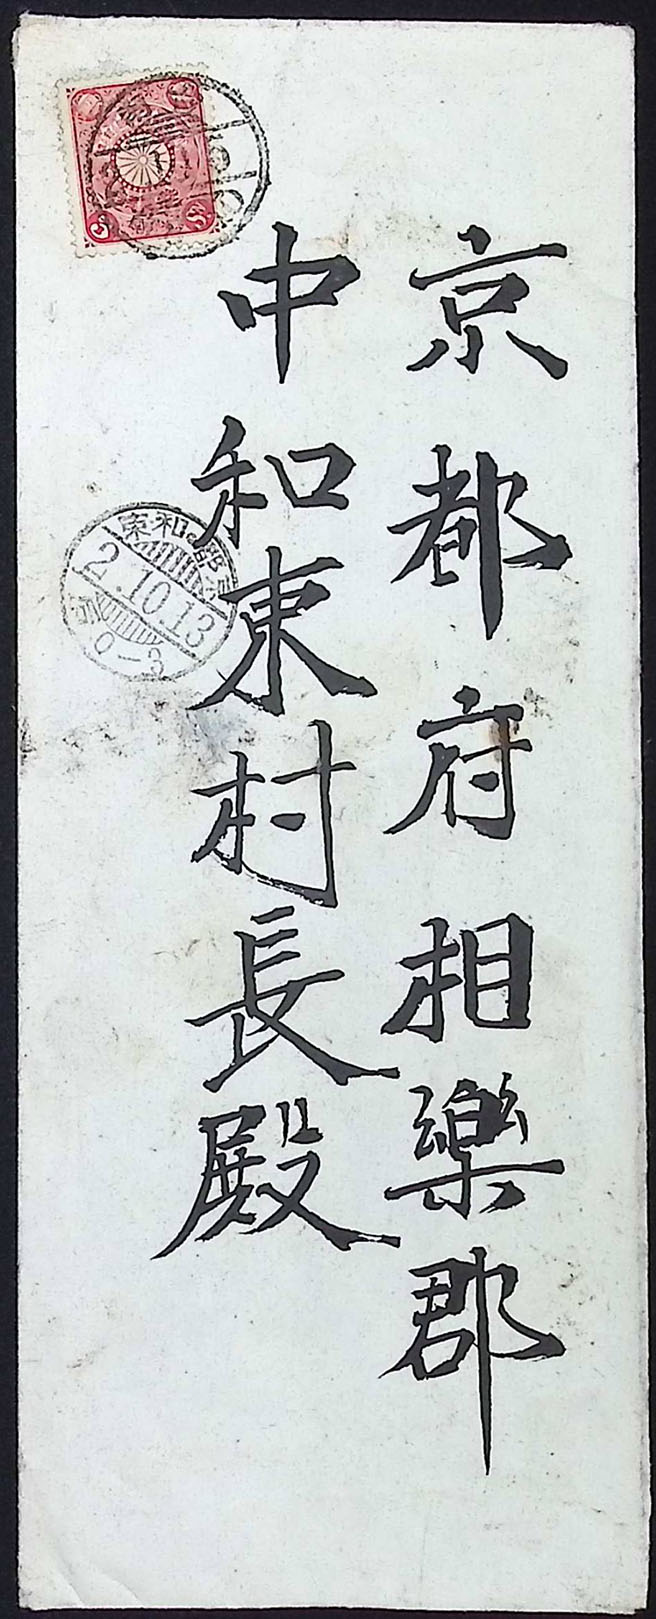 京都府相樂郡
中和束村長殿
2.10.13
0-3